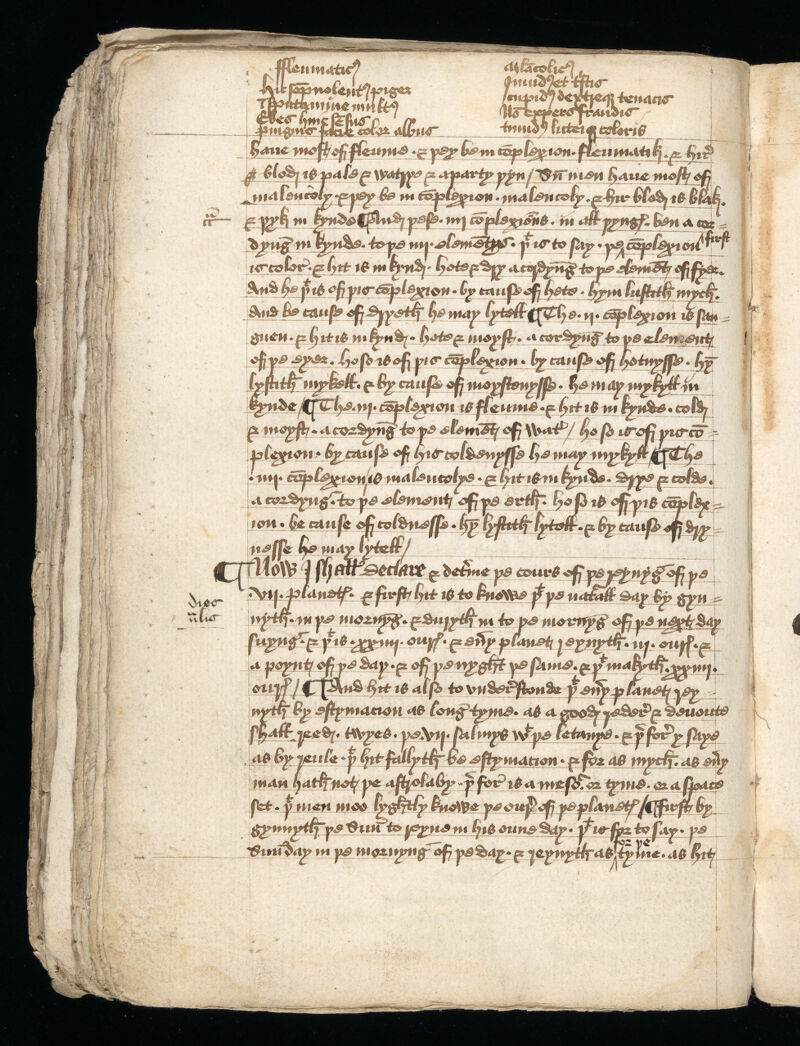 ffleumaticꝰ
Hic sōpnolentꝰ piger
Sputamine multꝰ
Ebes hinc sēsus
pinguis facie color albus
Malācolicꝰ
Inuidꝰ et tristis
cupidꝰ dextreqꝫ tenacis
Nō expers fraudis
timidꝰ luteiqꝫ coloris
haue most of fleume · & þey be in cōplexion · fleumatik · & hir
blod is pale & watrye & aparty þyn / Sū men haue most of
malencoly · & þey be in cōplexion · malencoly · & hir blod is blak ·
& þyk in kynde ¶ And þese · iiii complexiōns · in all þyngꝭ · ben a cor=
dyng in kynde · to þe iiii · elementys · þͭ is to say · þe first cōplexion
is color · & hit is in kynd · hote & dry acordyng to þe elemēt of fyer ·
And he þͭ is of þis cōplexion · by cause of hete · hym lustith mych ·
And be cause of dryeth he may lytell ¶ The · ii · cōplexion is san=
guen · & hit is in kynd · hote & moyst · a cordyng to þe element
of þe eyer · hoso is of þis cōplexion · by cause of hotnysse · hȳ
lystith mykell · & by cause of moystenysse · he may mykyll in
kynde / ¶ The · iii · cōplexion is fleume · & hit is in kynde · cold
& moyst · a cordyng to þe elemēt of watͬ / hoso is of þis cō=
plexion · by cause of his coldenysse he may mykyll ¶ The
· iiii · cōplexion is malencolye · & hit is in kynde · drye & colde ·
a cordyng · to þe element of þe erth · hoso is of þis cōplex=
ion · be cause of coldnesse · hȳ lystith lytell · & by cause of dry=
nesse he may lytell /
¶ Now I shall declare & detͬme þe cours of þe reynyg of þe
· vii · planetꝭ · & first hit is to knowe þͭ þe naturall day by gyn=
dies
nͣlis
nyth · in þe mornyg · & duryth in to þe mornyg of þe next day
suyng · & þͭ is · xxiiii · ourꝭ · & euͬy planet reynyth · iii · ourꝭ · &
a poynt of þe day · & of þe nyght þe same · & þͭ makyth · xxiiii ·
ourꝭ / ¶ And hit is also to vnderstonde þͭ euͬy planet rey=
nyth by estymacion as long tyme · as a good reder & deuoute
shall reed · twyes · þe vii · salmys wͭ þe letanye · & þͬfor y saye
as by reule · þͭ hit fallyth be estymacion · & for as mych · as euͬy
man hath not þe astrolaby · þͬfor is a mesoͬ or tyme · or a space
set · þͭ men moo lyghtly knowe þe ourꝭ of þe planetꝭ / ¶ first by
gynnyth þe Sūn to reyne in his oune day · þͭ is for to say · þe
Sūnday in þe mornyng of þe day · & reynyth as for þe tyme · as hit